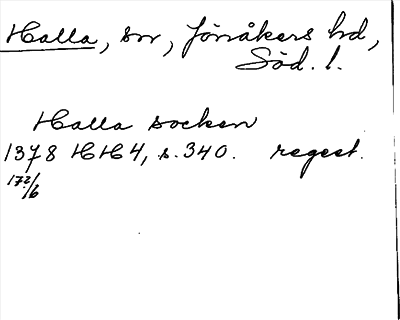 Halla, sn, Jönåkers hd,
Söd. l.
Halla socken
1378 HH 4, s. 340. regest.
17 2/6